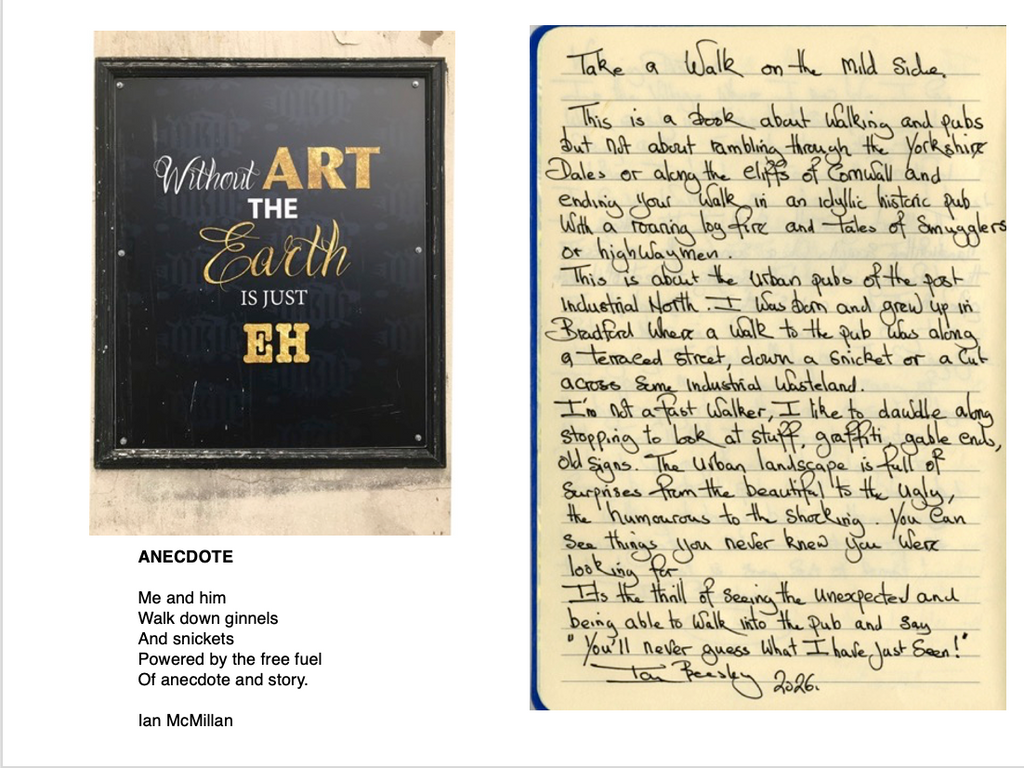 Without ART
THE
Earth
IS JUST
EH
ANECDOTE
Me and him
Walk down ginnels
And snickets
Powered by the free fuel
Of anecdote and story.
Ian McMillan
Take a Walk on the Mild Side.
This is a book about walking and pubs
but not about rambling through the Yorkshire
Dales or along the cliffs of Cornwall and
ending your walk in an idyllic historic pub
with a roaring log fire and tales of Smugglers
or highwaymen.
This is about the urban pubs of the post
Industrial North. I was born and grew up in
Bradford where a walk to the pub was along
a terraced street, down a snicket or a cut
across some Industrial Wasteland.
I'm not a fast walker, I like to dawdle along
stopping to look at stuff, graffiti, gable ends,
old signs. The urban landscape is full of
surprises from the beautiful to the ugly,
the humourous to the shocking. You can
see things you never knew you were
looking for
Its the thrill of seeing the unexpected and
being able to walk into the pub and say
"You'll never guess what I have just seen!"
Ian Beesley 2026.